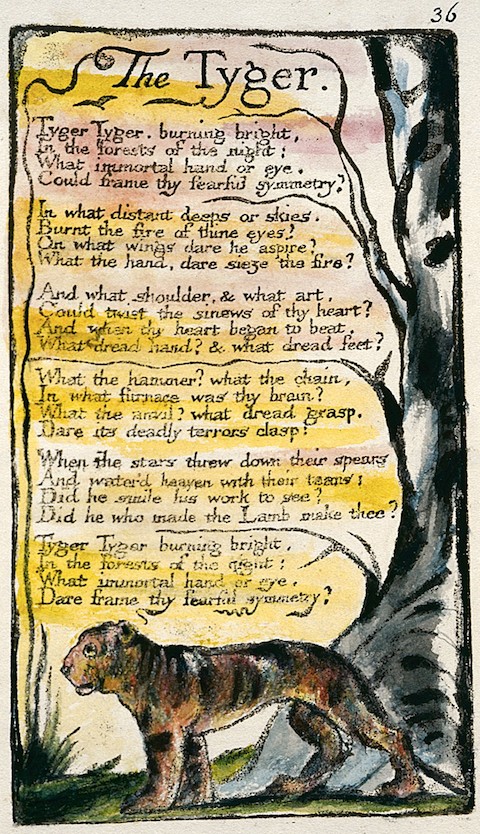 36
The Tyger.
Tyger Tyger. burning bright,
In the forests of the night:
What immortal hand or eye.
Could frame thy fearful symmetry?
In what distant deeps or skies.
Burnt the fire of thine eyes?
On what wings dare he aspire?
What the hand, dare sieze the fire?
And what shoulder, & what art,
Could twist the sinews of thy heart?
And when thy heart began to beat,
What dread hand? & what dread feet?
What the hammer? what the chain,
In what furnace was thy brain?
What the anvil? what dread grasp.
Dare its deadly terrors clasp?
When the stars threw down their spears
And water'd heaven with their tears:
Did he smile his work to see?
Did he who made the Lamb make thee?
Tyger Tyger burning bright,
In the forests of the night:
What immortal hand or eye.
Dare frame thy fearful symmetry?